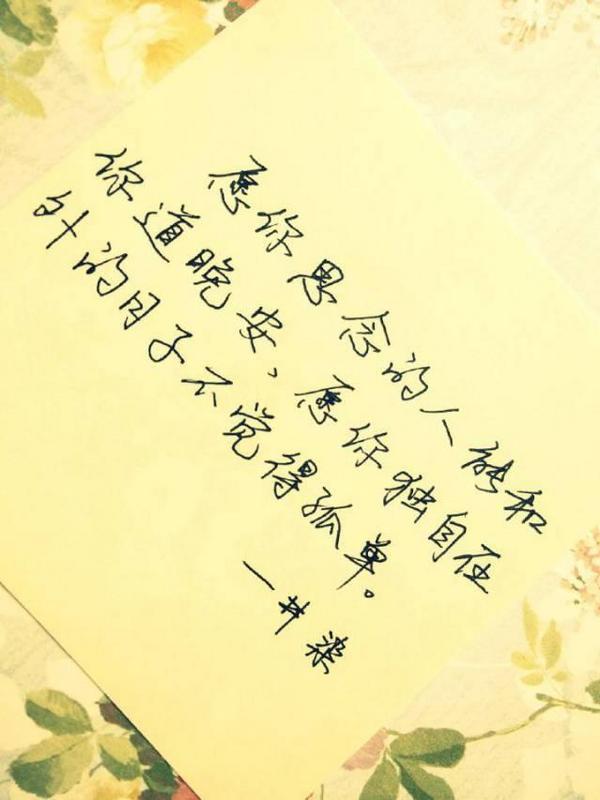 愿你思念的人能和
你道晚安，愿你独自在
外的日子不觉得孤单。
一井梁